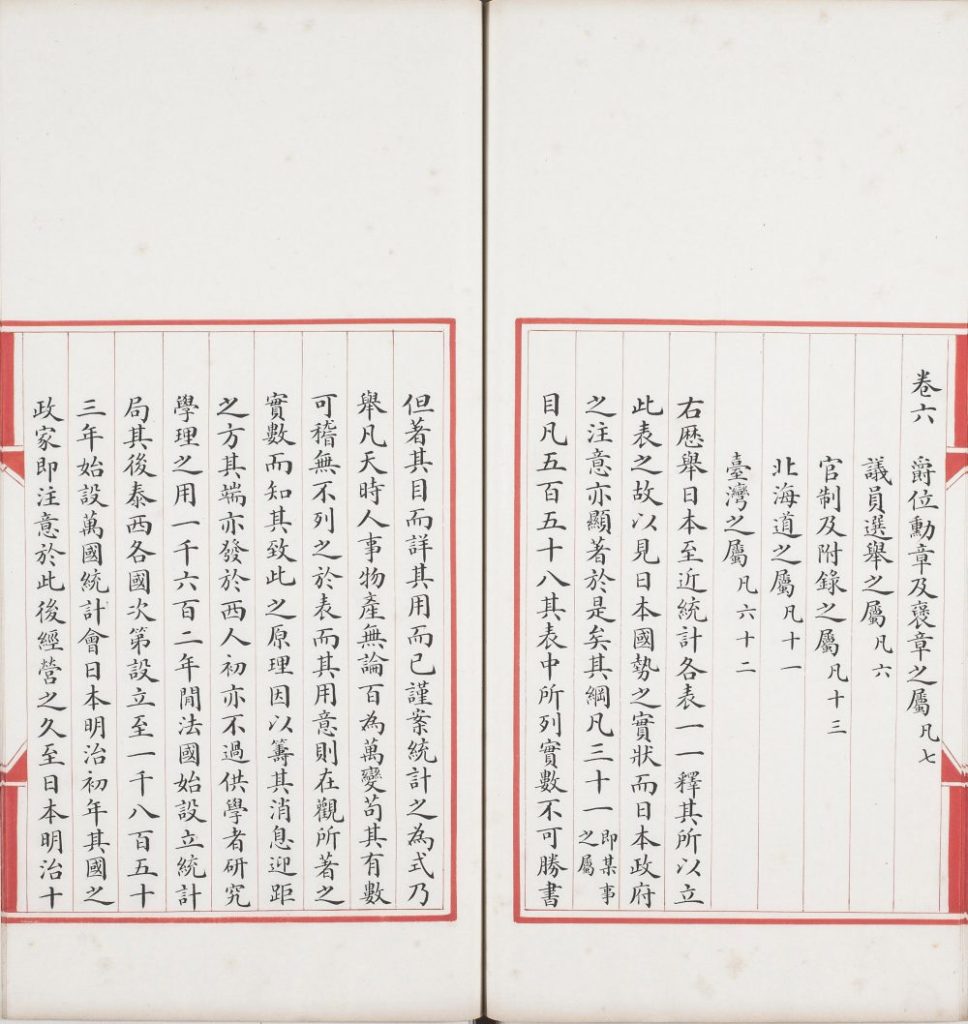 卷六 爵位勳章及褒章之屬凡七
議員選舉之屬凡六
官制及附錄之屬凡十三
北海道之屬凡十一
臺灣之屬凡六十二
右歷舉日本至近統計各表一一釋其所以立
此表之故以見日本國勢之實狀而日本政府
之注意亦顯著於是矣其綱凡三十一即某事之屬
目凡五百五十八其表中所列實數不可勝書
但著其目而詳其用而已謹案統計之為式乃
舉凡天時人事物產無論百為萬變苟其有數
可稽無不列之於表而其用意則在觀所著之
實數而知其致此之原理因以籌其消息迎距
之方其端亦發於西人初亦不過供學者研究
學理之用一千六百二年閒法國始設立統計
局其後泰西各國次第設立至一千八百五十
三年始設萬國統計會日本明治初年其國之
政家即注意於此後經營之久至日本明治十